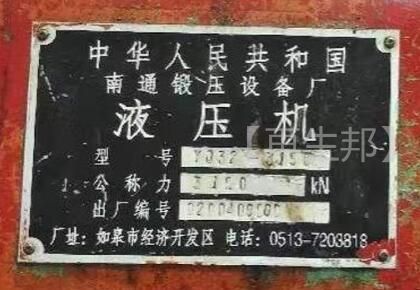 中华人民共和国
南通锻压设备厂
液压机
型号 YQ32-3150
公称力 3150 kN
出厂编号
厂址：如皋市经济开发区 电话：0513-7203818
【再生邦】